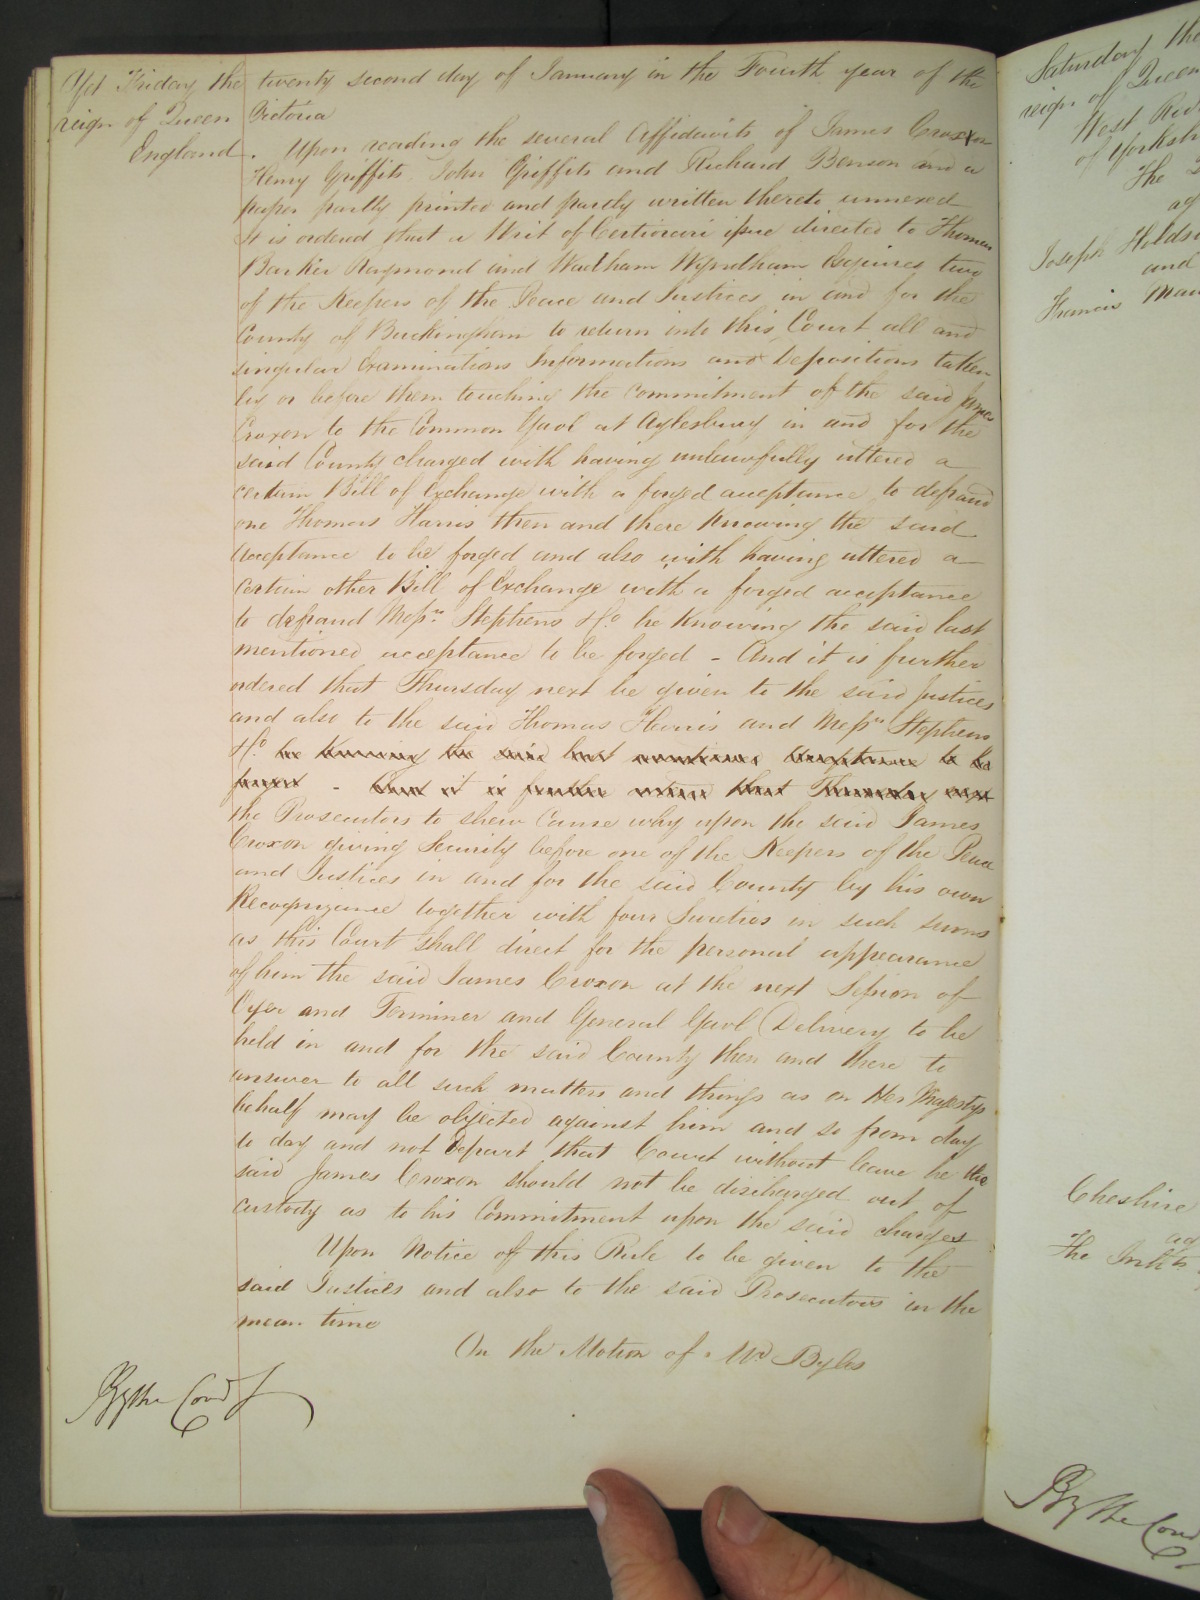 Yet Friday the twenty second day of January in the Fourth year of the
reign of Queen Victoria
England. Upon reading the several Affidavits of James Croxon
Henry Griffits John Griffits and Richard Benson and a
paper partly printed and partly written thereto annexed
It is ordered that a Writ of Certiorari issue directed to Thomas
Barker Raymond and Wadham Wyndham Esquires two
of the Keepers of the Peace and Justices in and for the
County of Buckingham to return into this Court all and
singular Examinations Informations and Depositions taken
by or before them touching the commitment of the said James
Croxon to the Common Gaol at Aylesbury in and for the
said County charged with having unlawfully uttered a
certain Bill of Exchange with a forged acceptance to defraud
one Thomas Harris then and there knowing the said
Acceptance to be forged and also with having uttered a
certain other Bill of Exchange with a forged acceptance
to defraud Messrs Stephens & Co he knowing the said last
mentioned acceptance to be forged - And it is further
ordered that Thursday next be given to the said Justices
and also to the said Thomas Harris and Messrs Stephens
& Co he knowing the said last mentioned acceptance to be
forged - And it is further ordered that Thursday next
the Prosecutors to shew Cause why upon the said James
Croxon giving Security before one of the Keepers of the Peace
and Justices in and for the said County by his own
Recognizance together with four Sureties in such sums
as this Court shall direct for the personal appearance
of him the said James Croxon at the next Session of
Oyer and Terminer and General Gaol Delivery to be
held in and for the said County then and there to
answer to all such matters and things as on Her Majestys
behalf may be objected against him and so from day
to day and not depart that Court without leave he the
said James Croxon should not be discharged out of
custody as to his Commitment upon the said charges
Upon Notice of this Rule to be given to the
said Justices and also to the said Prosecutors in the
mean time
On the Motion of Mr Byles
Saturday the
reign of Queen
West Rid
of Yorksh
The
ag
Joseph Holds
and
Francis Mau
Cheshire
ag
The Inhts